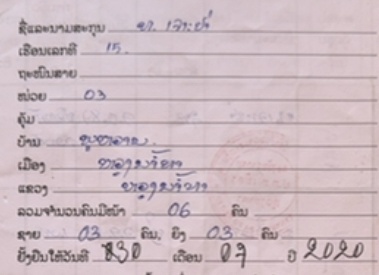 ຊື່ແລະນາມສະກຸນ ທ. ເຈາະຢ່າ
ເຮືອນເລກທີ 15.
ຖະໜົນສາຍ
ໜ່ວຍ 03
ຄຸ້ມ
ບ້ານ
ເມືອງ ຫລວງນ້ຳທາ
ແຂວງ ຫລວງນ້ຳທາ
ລວມຈຳນວນຄົນມີໜ້າ 06 ຄົນ
ຊາຍ 03 ຄົນ, ຍິງ 03 ຄົນ
ຢັ້ງຢືນໃຫ້ວັນທີ ເດືອນ 07 ປີ 2020